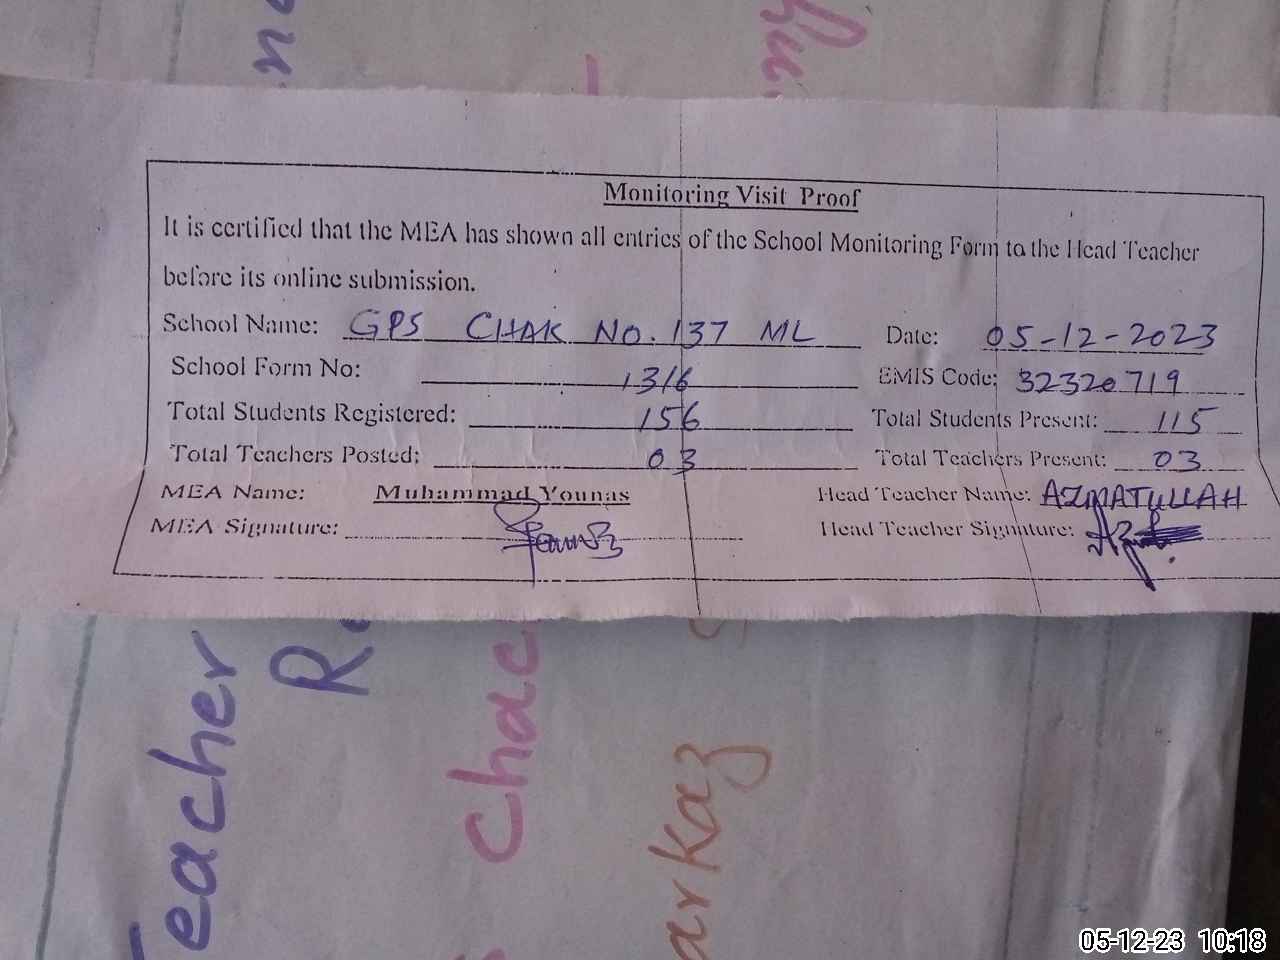 Monitoring Visit Proof
It is certified that the MEA has shown all entries of the School Monitoring Form to the Head Teacher
before its online submission.
School Name: GPS CHAK NO. 137 ML Date: 05-12-2023
School Form No: 1316 EMIS Code: 32320719
Total Students Registered: 156 Total Students Present: 115
Total Teachers Posted: 03 Total Teachers Present: 03
MEA Name: Muhammad Younas Head Teacher Name: AZMATULLAH
MEA Signature: Head Teacher Signature:
Teacher
05-12-23 10:18